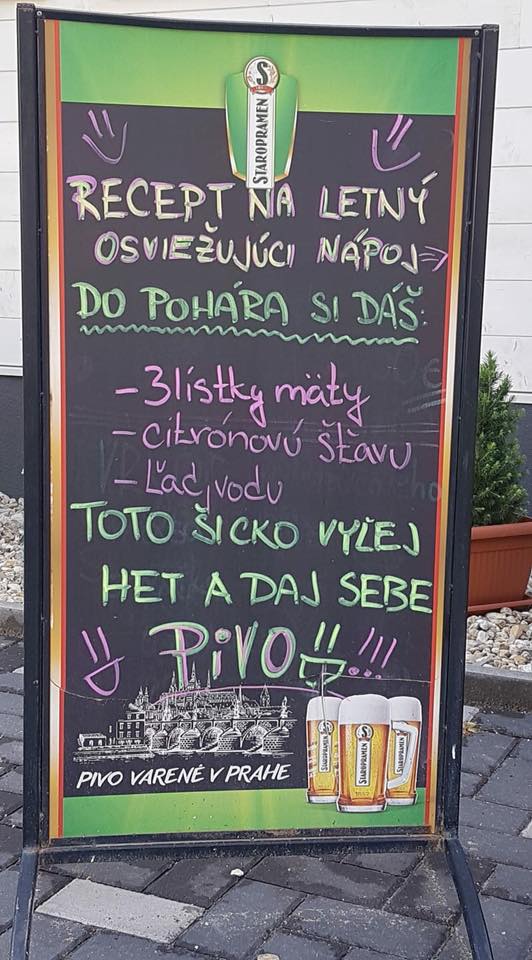 STAROPRAMEN
RECEPT NA LETNÝ
OSVIEŽUJÚCI NÁPOJ
DO POHÁRA SI DÁŠ:
- 3 lístky mäty
- citrónovú šťavu
- Ľad, vodu
TOTO ŠICKO VYĽEJ
HET A DAJ SEBE
PIVO!! !!!...
PIVO VARENÉ V PRAHE
STAROPRAMEN
STAROPRAMEN
STAROPRAMEN